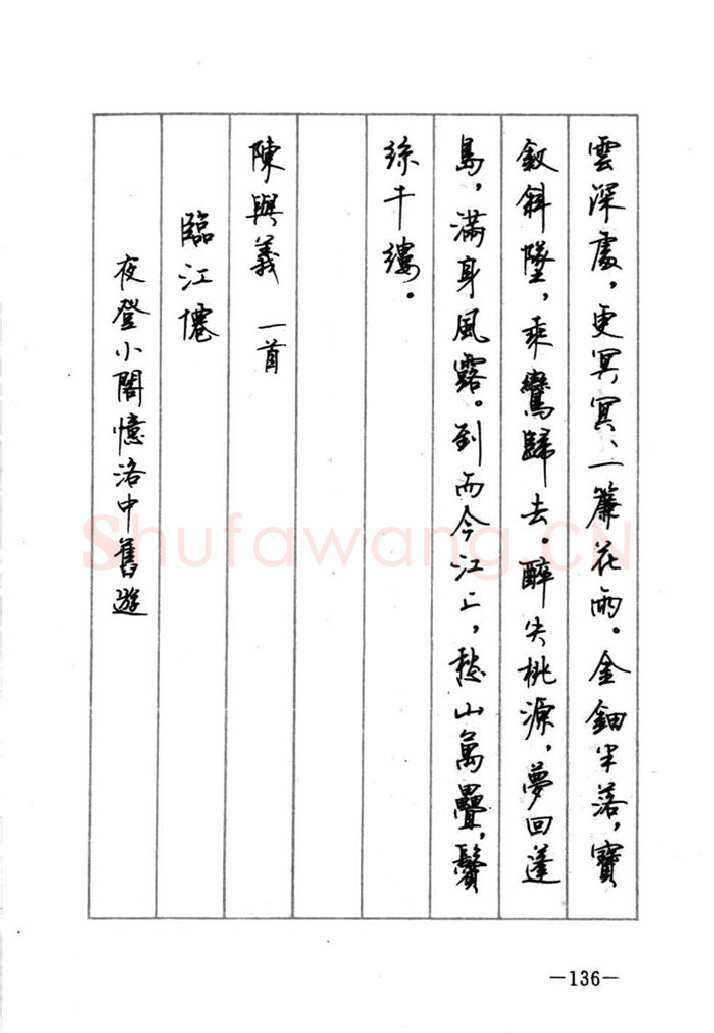 雲深處，更冥冥、一簾花雨。金鈿半落，寶
釵斜墜，乘鸞歸去。醉失桃源，夢回蓬
島，滿身風露。到而今江上，愁山萬疊，鬢
絲千縷。
陳與義 一首
臨江僊
夜登小閣憶洛中舊遊
Shufawang.CN
—136—